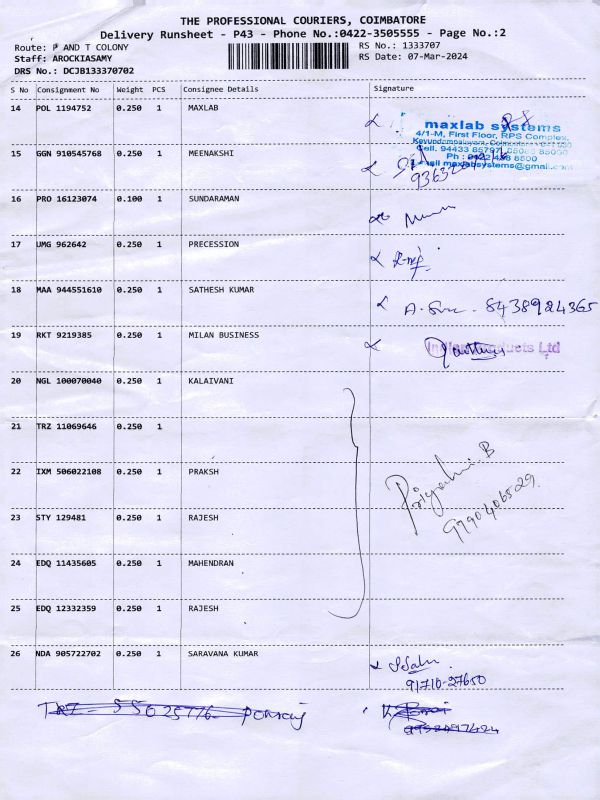 THE PROFESSIONAL COURIERS, COIMBATORE
Delivery Runsheet - P43 - Phone No.:0422-3505555 - Page No.:2
Route: P AND T COLONY
RS No.: 1333707
Staff: AROCKIASAMY
RS Date: 07-Mar-2024
DRS No.: DCJB133370702
S No Consignment No Weight PCS Consignee Details Signature
14 POL 1194752 0.250 1 MAXLAB
maxlab systems
4/1-M, First Floor, RPS Complex,
Cell: 94433 85797
Ph : 0422 8500
maxlabsystems@gmail.com
15 GGN 910545768 0.250 1 MEENAKSHI
16 PRO 16123074 0.100 1 SUNDARAMAN
17 UMG 962642 0.250 1 PRECESSION
18 MAA 944551610 0.250 1 SATHESH KUMAR
8438924365
19 RKT 9219385 0.250 1 MILAN BUSINESS
Products Ltd
20 NGL 100070040 0.250 1 KALAIVANI
21 TRZ 11069646 0.250 1
22 IXM 506022108 0.250 1 PRAKSH
Priyadini.B
9790406529
23 STY 129481 0.250 1 RAJESH
24 EDQ 11435605 0.250 1 MAHENDRAN
25 EDQ 12332359 0.250 1 RAJESH
26 NDA 905722702 0.250 1 SARAVANA KUMAR
91710-27650
Ponraj